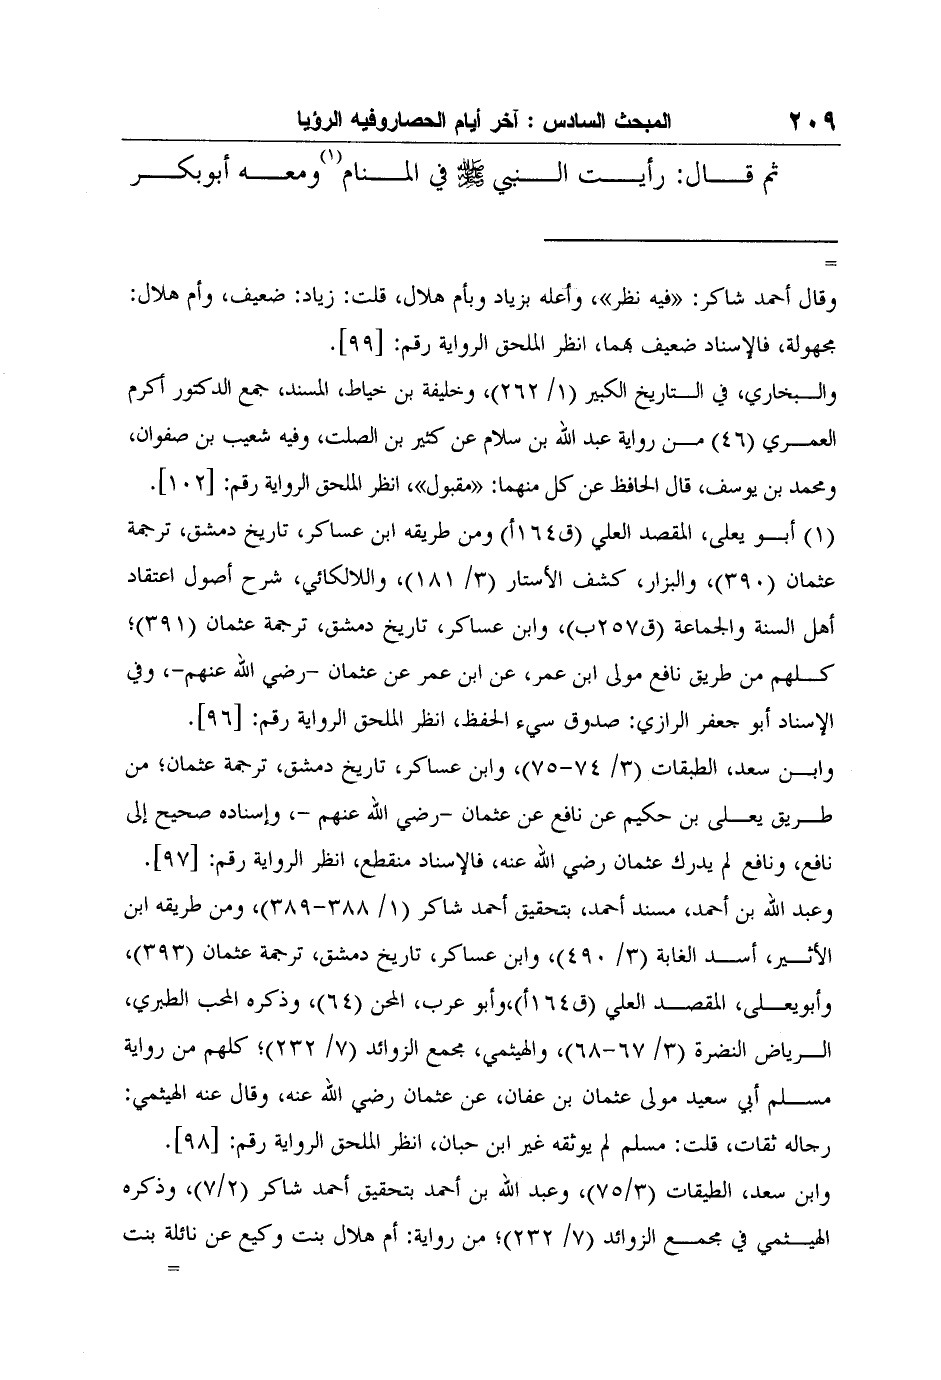 ٢٠٩ المبحث السادس : آخر أيام الحصاروفيه الرؤيا
ثم قـــال: رأيـــت الـــنبي ﷺ في المـــنام(١)ومعـــه أبوبكـــر
=
وقال أحمد شاكر: «فيه نظر»، وأعله بزياد وبأم هلال، قلت: زياد: ضعيف، وأم هلال:
مجهولة، فالإسناد ضعيف بهما، انظر الملحق الرواية رقم: [٩٩].
والـــبخاري، في الـــتاريخ الكبير (١/ ٢٦٢)، وخليفة بن خياط، المسند، جمع الدكتور أكرم
العمـــري (٤٦) مـــن رواية عبد الله بن سلام عن كثير بن الصلت، وفيه شعيب بن صفوان،
ومحمد بن يوسف، قال الحافظ عن كل منهما: «مقبول»، انظر الملحق الرواية رقم: [١٠٢].
(١) أبـــو يعلى، المقصد العلي (ق١٦٤أ) ومن طريقه ابن عساكر، تاريخ دمشق، ترجمة
عثمان (٣٩٠)، والبزار، كشف الأستار (٣/ ١٨١)، واللالكائي، شرح أصول اعتقاد
أهل السنة والجماعة (ق٢٥٧ب)، وابن عساكر، تاريخ دمشق، ترجمة عثمان (٣٩١)؛
كـــلهم من طريق نافع مولى ابن عمر، عن ابن عمر عن عثمان -رضي الله عنهم-، وفي
الإسناد أبو جعفر الرازي: صدوق سيء الحفظ، انظر الملحق الرواية رقم: [٩٦].
وابـــن سعد، الطبقات (٣/ ٧٤-٧٥)، وابن عساكر، تاريخ دمشق، ترجمة عثمان؛ من
طـــريق يعـــلى بن حكيم عن نافع عن عثمان -رضي الله عنهم -، وإسناده صحيح إلى
نافع، ونافع لم يدرك عثمان رضي الله عنه، فالإسناد منقطع، انظر الرواية رقم: [٩٧].
وعبد الله بن أحمد، مسند أحمد، بتحقيق أحمد شاكر (١/ ٣٨٨-٣٨٩)، ومن طريقه ابن
الأثـــير، أســـد الغابة (٣/ ٤٩٠)، وابن عساكر، تاريخ دمشق، ترجمة عثمان (٣٩٣)،
وأبويعـــلى، المقصـــد العلي (ق١٦٤أ)،وأبو عرب، المحن (٦٤)، وذكره المحب الطبري،
الـــرياض النضرة (٣/ ٦٧-٦٨)، والهيثمي، مجمع الزوائد (٧/ ٢٣٢)؛ كلهم من رواية
مســـلم أبي سعيد مولى عثمان بن عفان، عن عثمان رضي الله عنه، وقال عنه الهيثمي:
رجاله ثقات، قلت: مسلم لم يوثقه غير ابن حبان، انظر الملحق الرواية رقم: [٩٨].
وابن سعد، الطبقات (٧٥/٣)، وعبد الله بن أحمد بتحقيق أحمد شاكر (٧/٢)، وذكره
الهيـــثمي في مجمـــع الزوائد (٧/ ٢٣٢)؛ من رواية: أم هلال بنت وكيع عن نائلة بنت
=